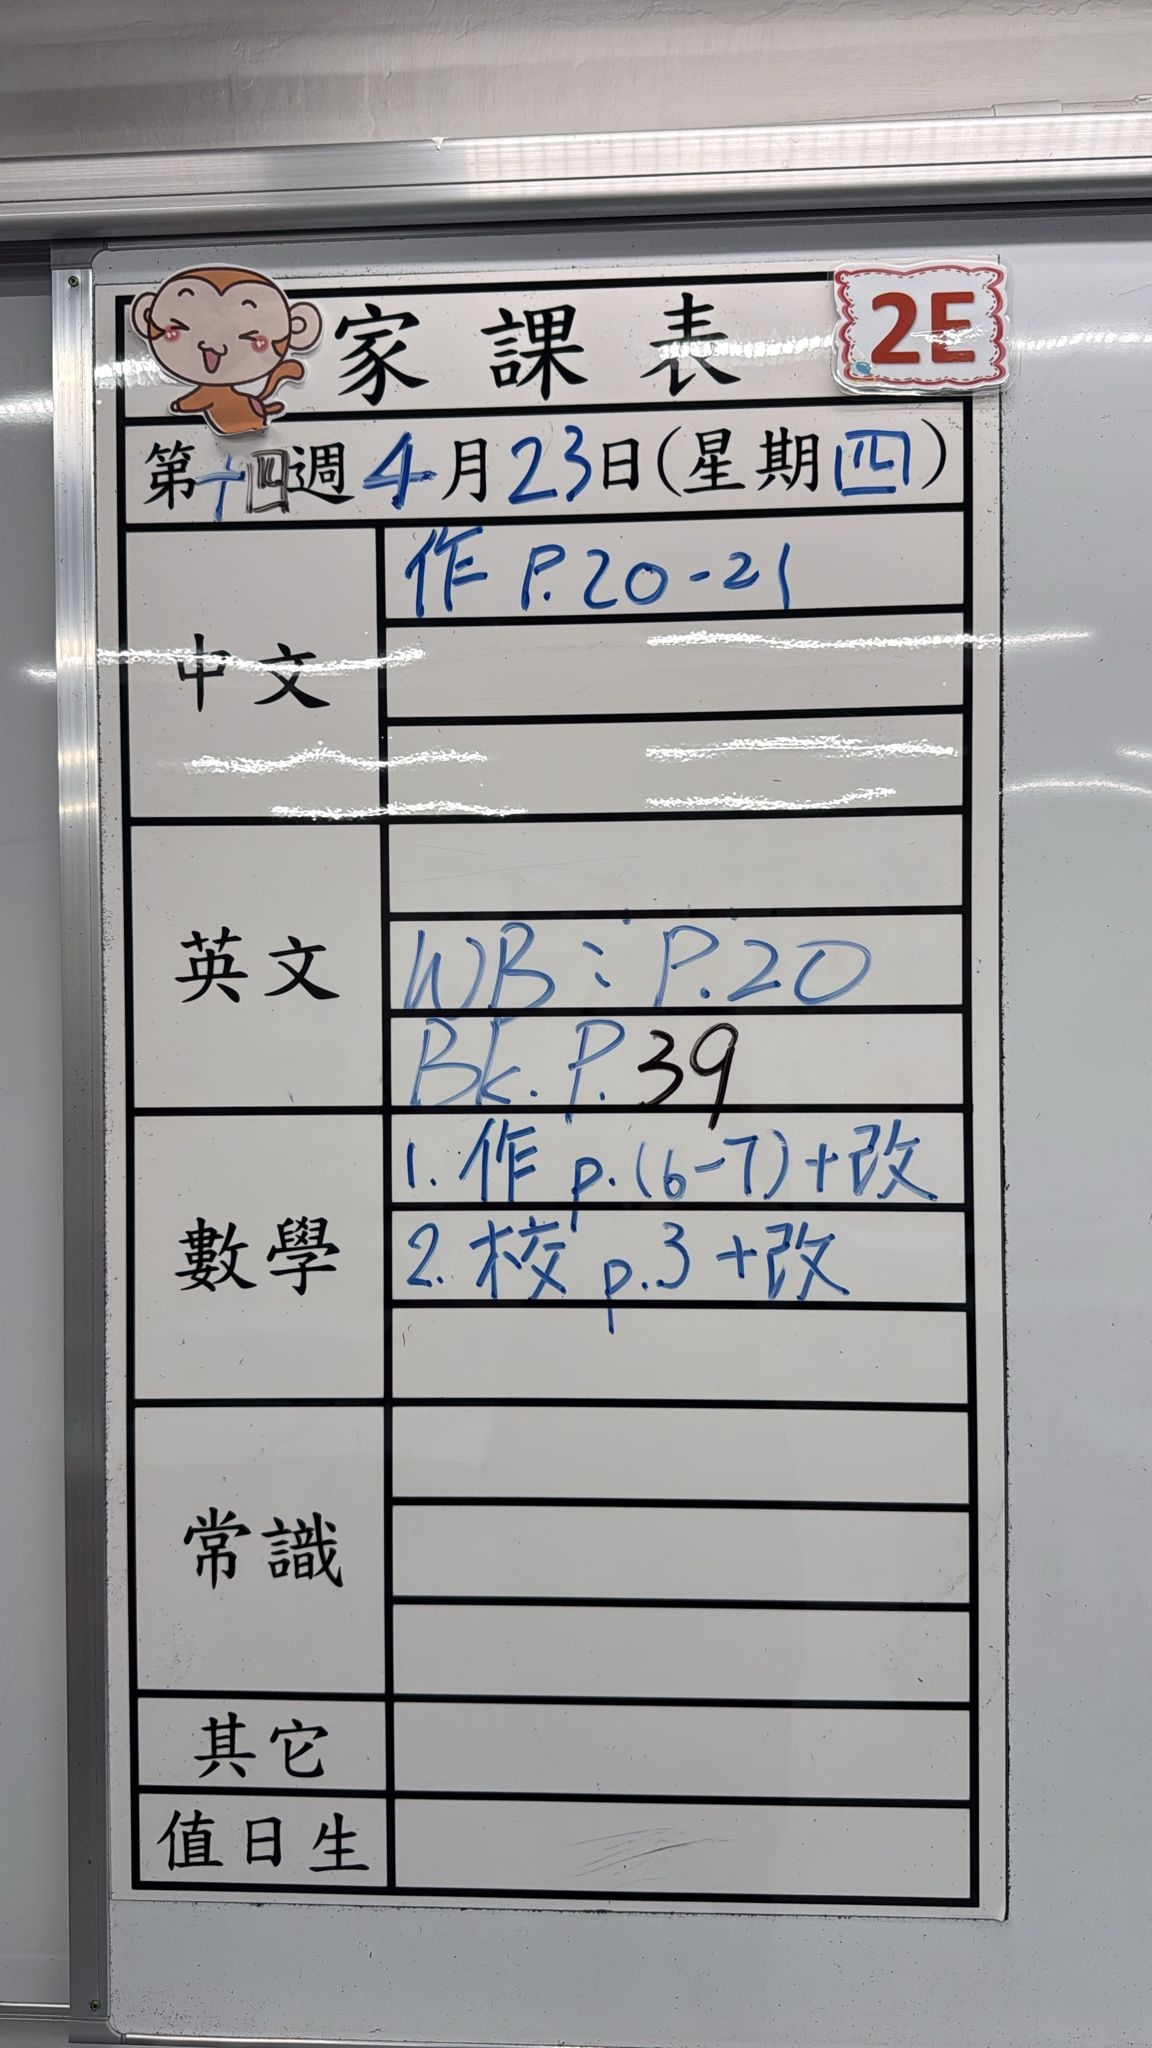 家課表 2E
第十四週 4月23日(星期四)
中文
作 P.20-21
英文
WB: P.20
Bk. P.39
數學
1. 作 p.(6-7)+改
2. 校 p.3 +改
常識
其它
值日生